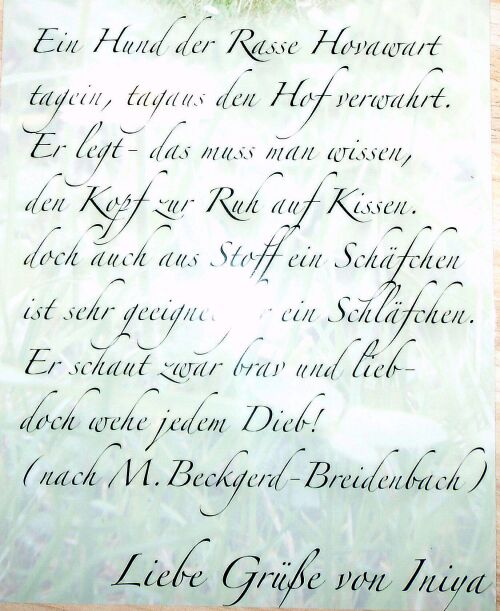 Ein Hund der Rasse Hovawart
tagein, tagaus den Hof verwahrt.
Er legt - das muss man wissen,
den Kopf zur Ruh auf Kissen.
doch auch aus Stoff ein Schäfchen
ist sehr ein Schläfchen.
Er schaut zwar brav und lieb-
doch wehe jedem Dieb!
(nach M. Beckgerd-Breidenbach)
Liebe Grüße von Iniya